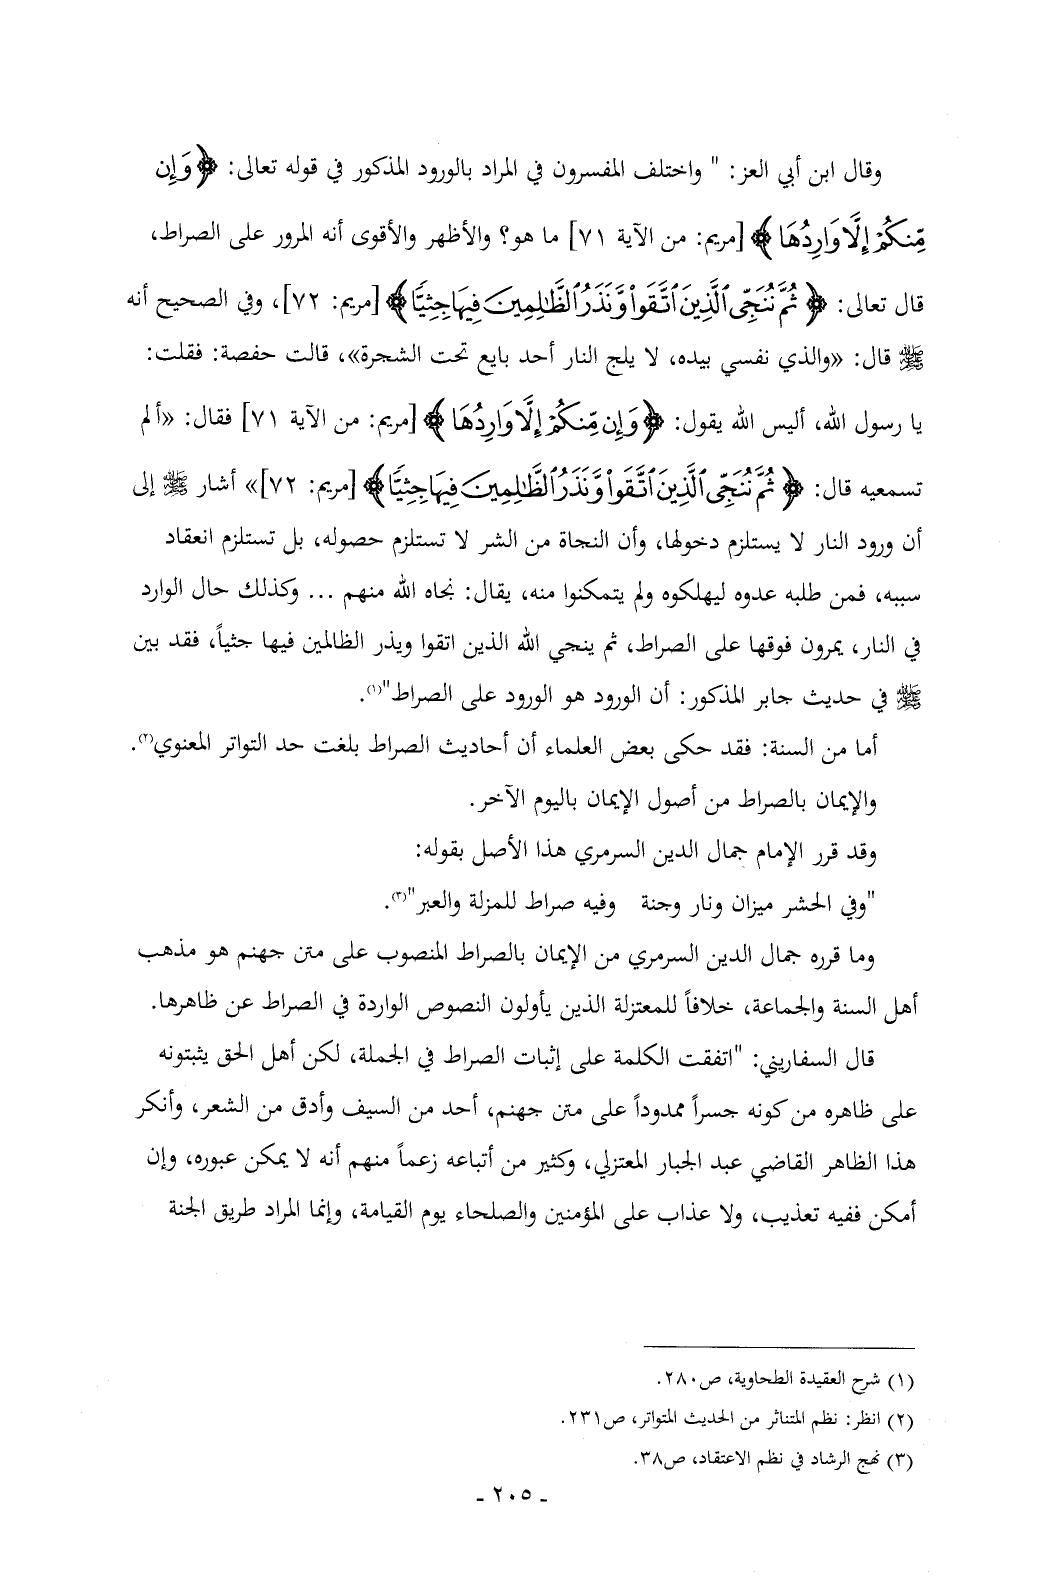 وقال ابن أبي العز: " واختلف المفسرون في المراد بالورود المذكور في قوله تعالى: ﴿وَإِن
مِّنكُمْ إِلَّا وَارِدُهَا﴾ [مريم: من الآية ٧١] ما هو؟ والأظهر والأقوى أنه المرور على الصراط،
قال تعالى: ﴿ثُمَّ نُنَجِّي ٱلَّذِينَ ٱتَّقَوا۟ وَّنَذَرُ ٱلظَّٰلِمِينَ فِيهَا جِثِيًّا﴾ [مريم: ٧٢]، وفي الصحيح أنه
ﷺ قال: «والذي نفسي بيده، لا يلج النار أحد بايع تحت الشجرة»، قالت حفصة: فقلت:
يا رسول الله، أليس الله يقول: ﴿وَإِن مِّنكُمْ إِلَّا وَارِدُهَا﴾ [مريم: من الآية ٧١] فقال: «ألم
تسمعيه قال: ﴿ثُمَّ نُنَجِّي ٱلَّذِينَ ٱتَّقَوا۟ وَّنَذَرُ ٱلظَّٰلِمِينَ فِيهَا جِثِيًّا﴾ [مريم: ٧٢]» أشار ﷺ إلى
أن ورود النار لا يستلزم دخولها، وأن النجاة من الشر لا تستلزم حصوله، بل تستلزم انعقاد
سببه، فمن طلبه عدوه ليهلكوه ولم يتمكنوا منه، يقال: نجاه الله منهم ... وكذلك حال الوارد
في النار، يمرون فوقها على الصراط، ثم ينجي الله الذين اتقوا ويذر الظالمين فيها جثياً، فقد بين
ﷺ في حديث جابر المذكور: أن الورود هو الورود على الصراط"(١).
أما من السنة: فقد حكى بعض العلماء أن أحاديث الصراط بلغت حد التواتر المعنوي(٢).
والإيمان بالصراط من أصول الإيمان باليوم الآخر.
وقد قرر الإمام جمال الدين السرمري هذا الأصل بقوله:
"وفي الحشر ميزان ونار وجنة   وفيه صراط للمزلة والعبر"(٣).
وما قرره جمال الدين السرمري من الإيمان بالصراط المنصوب على متن جهنم هو مذهب
أهل السنة والجماعة، خلافاً للمعتزلة الذين يأولون النصوص الواردة في الصراط عن ظاهرها.
قال السفاريني: "اتفقت الكلمة على إثبات الصراط في الجملة، لكن أهل الحق يثبتونه
على ظاهره من كونه جسراً ممدوداً على متن جهنم، أحد من السيف وأدق من الشعر، وأنكر
هذا الظاهر القاضي عبد الجبار المعتزلي، وكثير من أتباعه زعماً منهم أنه لا يمكن عبوره، وإن
أمكن ففيه تعذيب، ولا عذاب على المؤمنين والصلحاء يوم القيامة، وإنما المراد طريق الجنة
(١) شرح العقيدة الطحاوية، ص٢٨٠.
(٢) انظر: نظم المتناثر من الحديث المتواتر، ص٢٣١.
(٣) نهج الرشاد في نظم الاعتقاد، ص٣٨.
- ٢٠٥ -